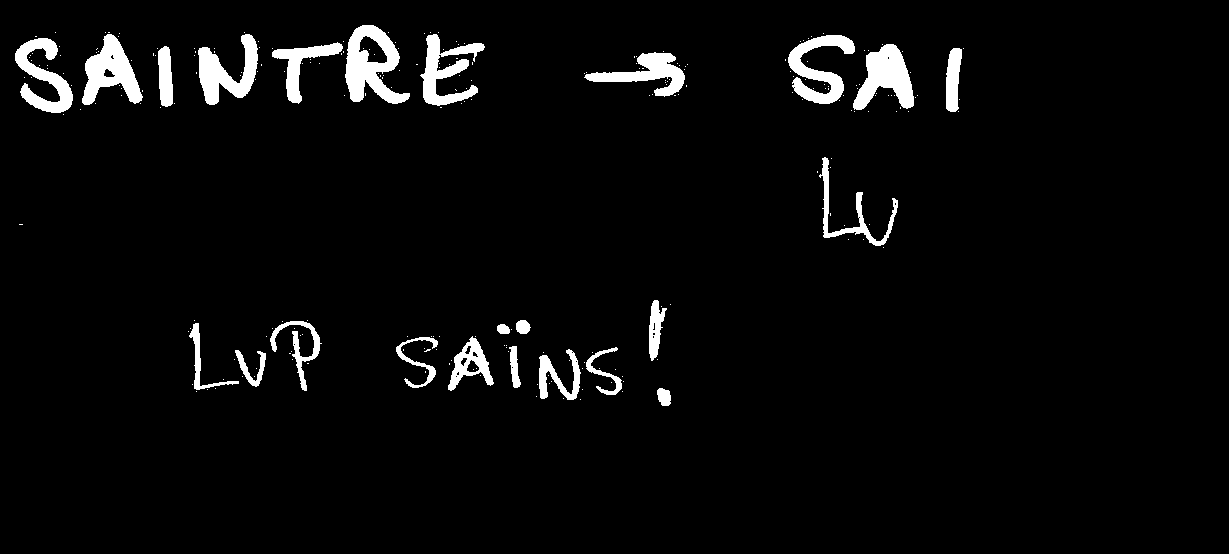 SAINTRE → SAI
LU
LUP SAÏNS!